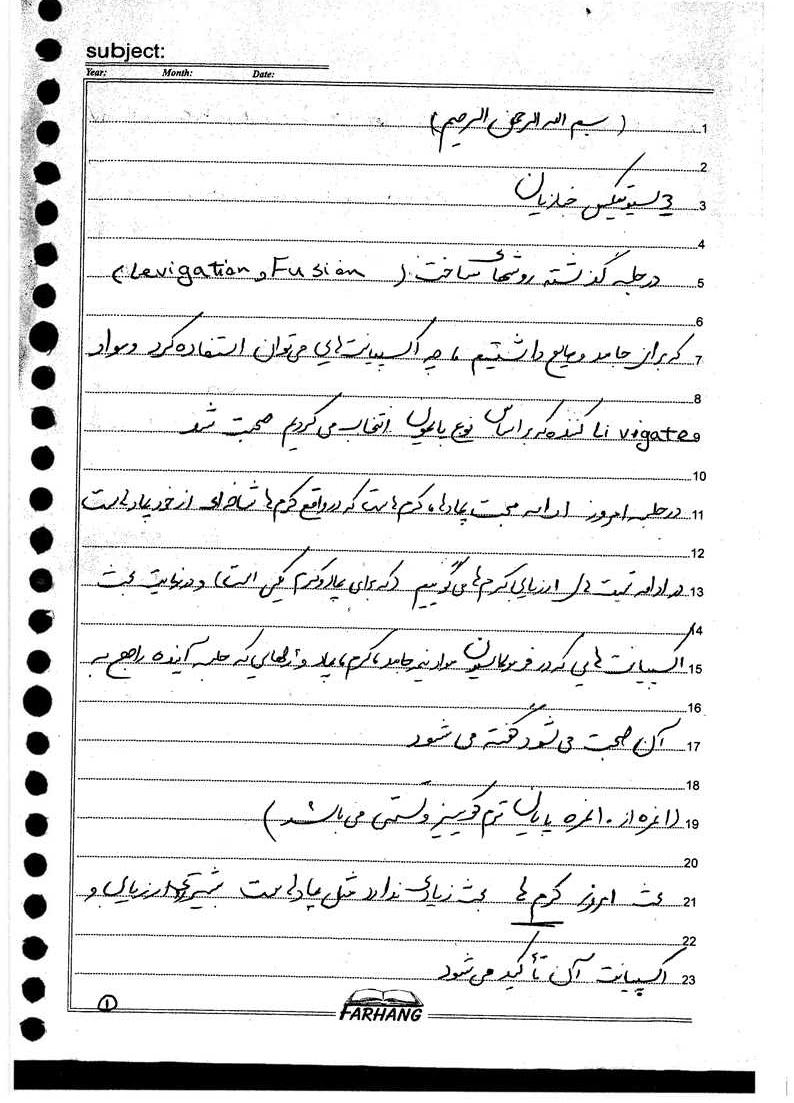 subject:
Year: Month: Date:
1 (بسم الله الرحمن الرحیم)
2
3 سیوتیکس خازیان
4
5 درجلسه گذشته روشهای ساخت (Fusion و Levigation)
6
7 که برای جامد و مایع داشتیم ، چه اکسپیانت‌هایی می‌توان استفاده کرد و مواد
8
9 Livigate کننده که براساس نوع انتخاب می‌کردیم صحبت شد
10
11 درجلسه امروز ادامه مبحث پمادها، کرم‌هاست که در واقع کرم‌ها شاخه‌ای از خود پمادهاست
12
13 در ادامه ارزیابی کرم‌ها می‌گوییم (که برای پماد و کرم یکی است) و درنهایت بحث
14
15 اکسپیانت هایی که در فرمولاسیون مواد نیمه جامد ،کرم ،پماد و ژلهایی که جلسه آینده راجع به
16
17 آن صحبت می‌شود گفته می شود
18
19 (۱نمره از ۱۰نمره پایان ترم کوییز می باشد)
20
21 بحث امروز کرم ها بحث زیادی ندارد مثل پمادهاست بیشتر ارزیابی و
22
23 اکسپیانت آن تأکید می‌شود
1
FARHANG